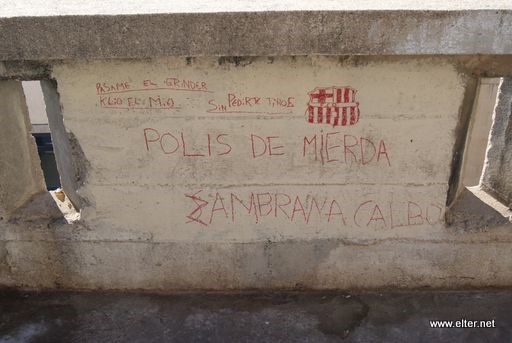 PASAME EL GRINDER
KLIO EL MIO SIN PEDIRTE TIROS
POLIS DE MIERDA
ZAMBRANA CALBO
www.elter.net